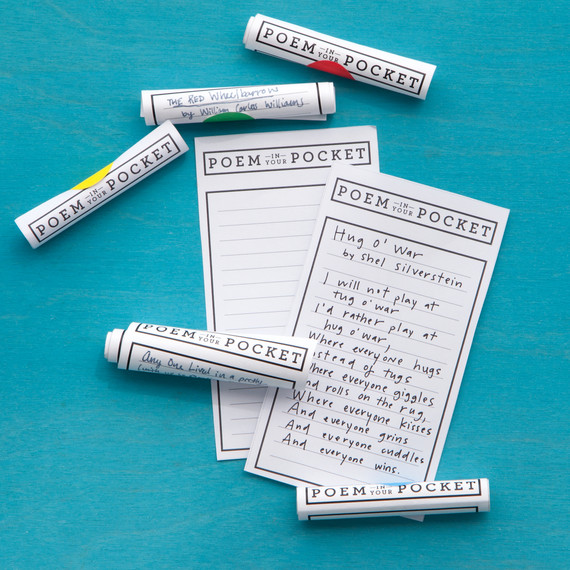 POEM IN YOUR POCKET
THE RED Wheelbarrow
by William Carlos Williams
POEM IN YOUR POCKET
POEM IN YOUR POCKET
POEM IN YOUR POCKET
Hug o' War
by Shel Silverstein
I will not play at
tug o' war
I'd rather play at
hug o' war,
Where everyone hugs
nstead of tugs
here everyone giggles
nd rolls on the rug,
Where everyone kisses
And everyone grins
And everyone cuddles
And everyone wins.
POEM IN YOUR POCKET
Any One Lived in a pretty
POEM IN YOUR POCKET